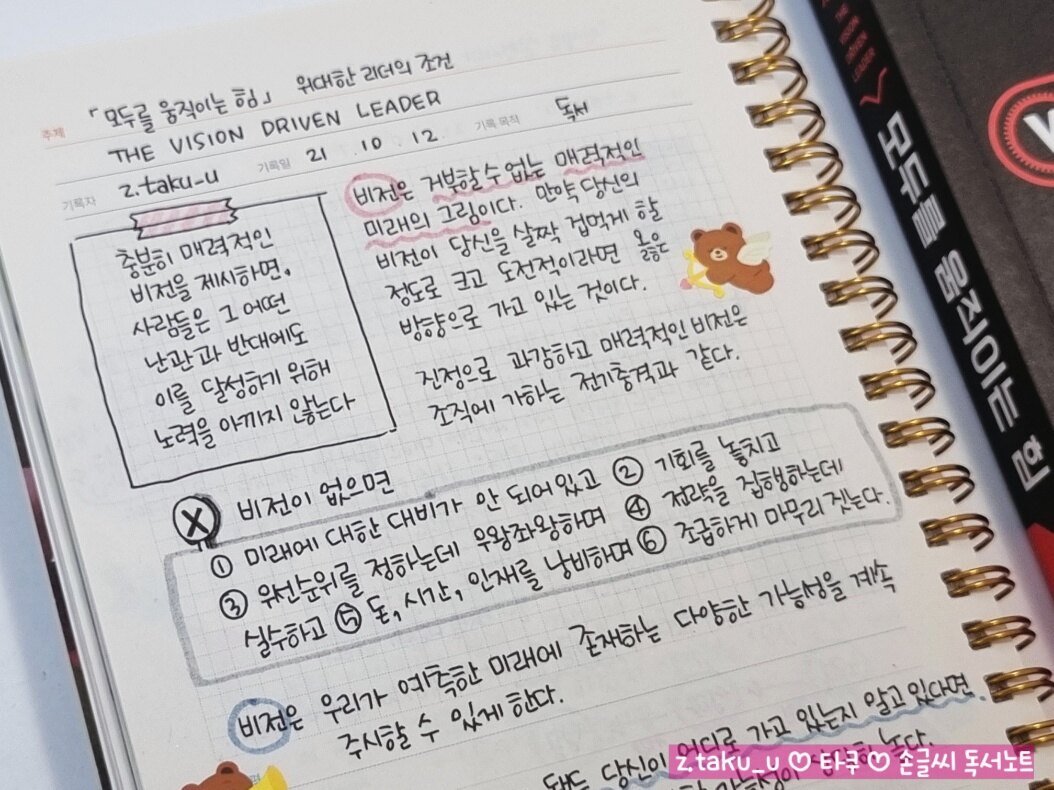 주제 「모두를 움직이는 힘」 위대한 리더의 조건
THE VISION DRIVEN LEADER
기록자 z.taku_u 기록일 21 . 10 . 12. 기록 목적 독서
충분히 매력적인
비전을 제시하면,
사람들은 그 어떤
난관과 반대에도
이를 달성하기 위해
노력을 아끼지 않는다
비전은 거부할 수 없는 매력적인
미래의 그림이다. 만약 당신의
비전이 당신을 살짝 겁먹게 할
정도로 크고 도전적이라면 옳은
방향으로 가고 있는 것이다.
진정으로 과감하고 매력적인 비전은
조직에 가하는 전기충격과 같다.
X 비전이 없으면
① 미래에 대한 대비가 안 되어있고 ② 기회를 놓치고
③ 우선순위를 정하는데 우왕좌왕하며 ④ 전략을 집행하는데
실수하고 ⑤ 돈, 시간, 인재를 낭비하며 ⑥ 조급하게 마무리 짓는다.
비전은 우리가 예측한 미래에 존재하는 다양한 가능성을 계속
주시할 수 있게 한다.
당신이 어디로 가고 있는지 알고 있다면
가능성이
높다.
THE VISION DRIVEN LEADER
모두를 움직이는 힘
z.taku_u ♡ 타쿠 ♡ 손글씨 독서노트